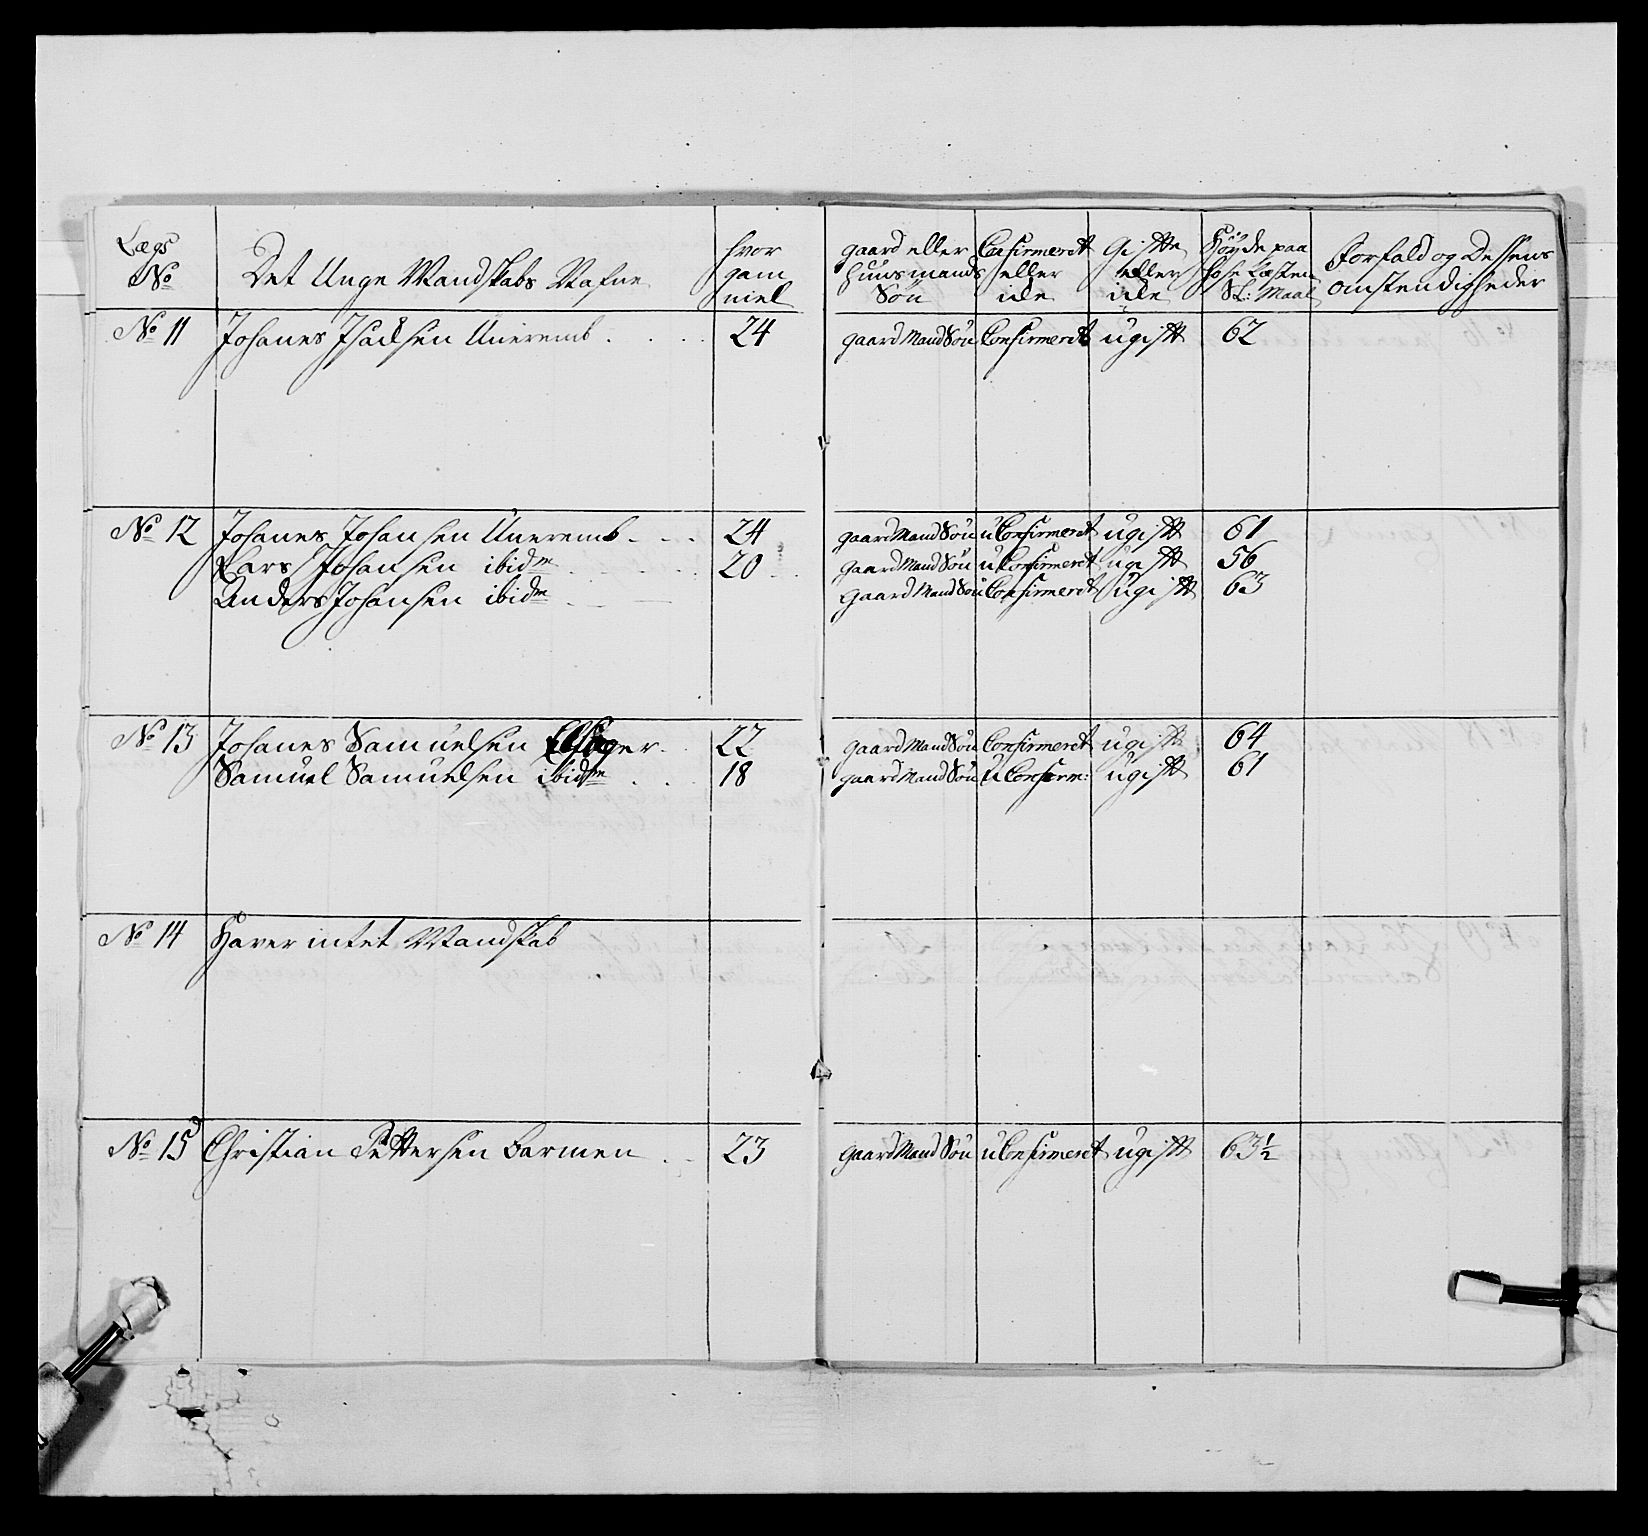 Lægs No Det Unge Mandskabs Nafne hvor gam mel gaard eller huusmands Søn Confirmeret eller icke Gifte eller icke Høyde paa hose Læsten Sl: Maal Forfald og Dessens omstendigheder
No 11 Johanes Isacksen 24 gaard Mand Søn Confirmeret ugift 62
No 12 Johanes Johansen 24 gaard Mand Søn u Confirmeret ugift 61
Lars Johansen ibidm 20 gaard Mand Søn u Confirmeret ugift 56
Anders Johansen ibidm Gaard Mand Søn Confirmeret ugift 63
No 13 Johanes Samuelsen 22 gaard Mand Søn Confirmeret ugift 64
Samuel Samuelsen ibidm 18 gaard Mand Søn u Confirm: ugift 61
No 14 Haver intet Mandskab
No 15 Christian Pettersen Barmen 23 gaard Mand Søn u Confirmeret ugift 63½